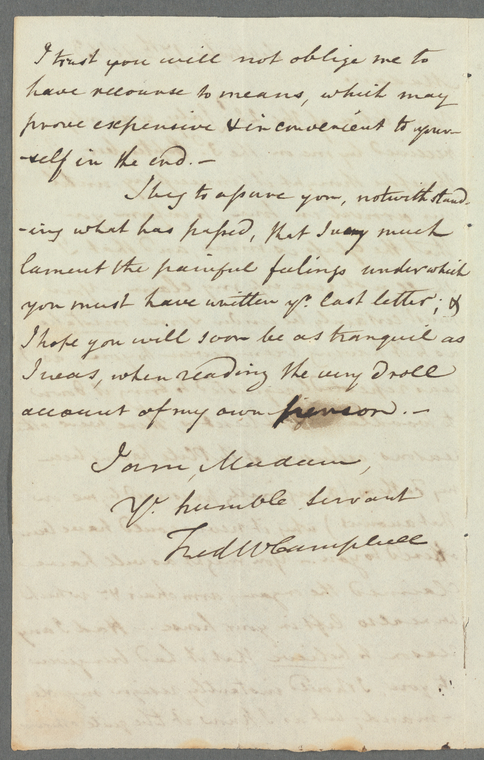 I trust you will not oblige me to
have recourse to means, which may
prove expensive & inconvenient to your-
-self in the end. -
I beg to assure you, notwithstand-
-ing what has passed, that I very much
lament the painful feelings under which
you must have written yr. last letter; &
I hope you will soon be as tranquil as
I was, when reading the very droll
account of my own person. -
I am, Madam,
Yr. humble Servant
Fred W Campbell